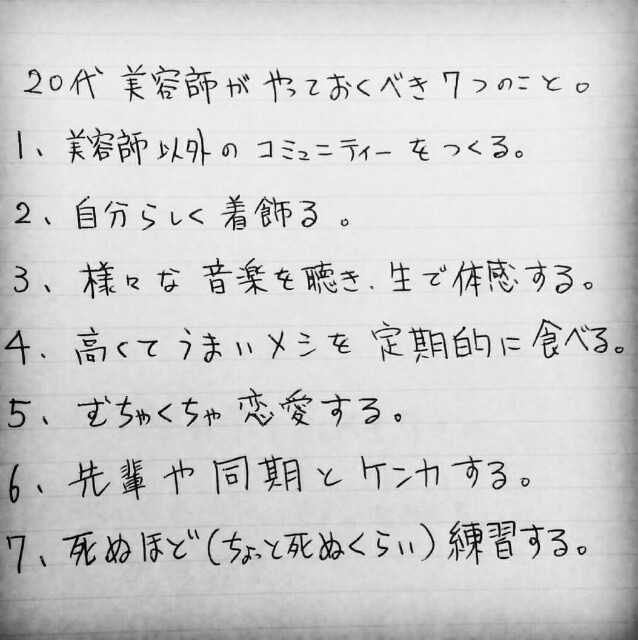 20代 美容師が やっておくべき 7つのこと。
1、美容師以外の コミュニティーをつくる。
2、自分らしく着飾る。
3、様々な 音楽を聴き、生で体感する。
4、高くてうまいメシを定期的に食べる。
5、むちゃくちゃ恋愛する。
6、先輩や同期とケンカする。
7、死ぬほど(ちょっと死ぬくらい)練習する。